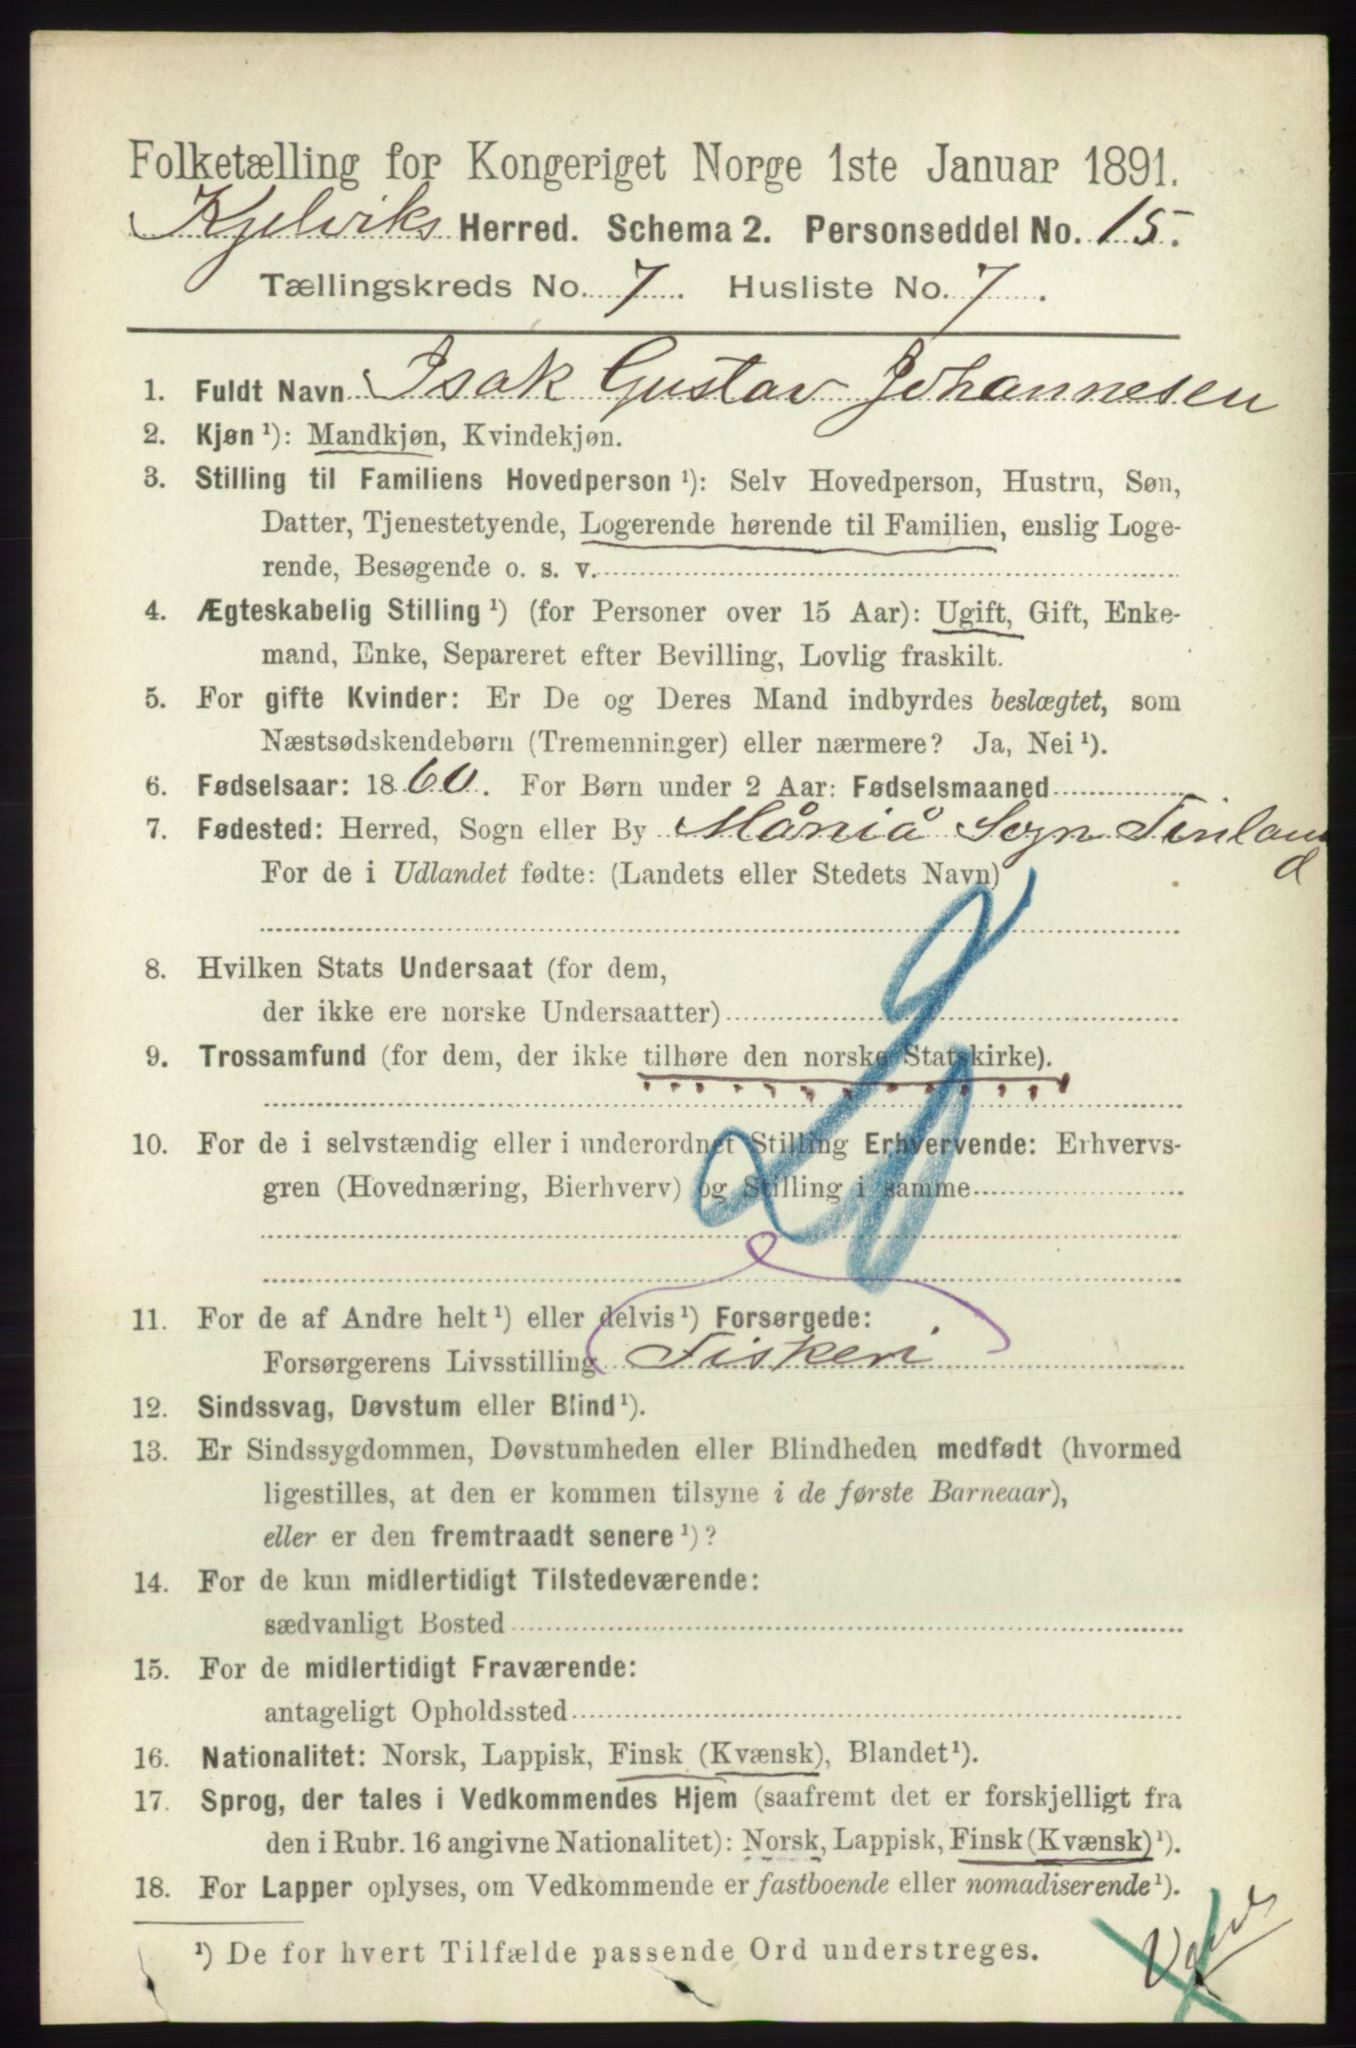 Folketælling for Kongeriget Norge 1ste Januar 1891.
Kjelviks Herred. Schema 2. Personseddel No. 15.
Tællingskreds No. 7. Husliste No. 7.
1. Fuldt Navn Isak Gustav Johannesen
2. Kjøn ¹): Mandkjøn, Kvindekjøn.
3. Stilling til Familiens Hovedperson ¹): Selv Hovedperson, Hustru, Søn,
Datter, Tjenestetyende, Logerende hørende til Familien, enslig Loge-
rende, Besøgende o. s. v.
4. Ægteskabelig Stilling ¹) (for Personer over 15 Aar): Ugift, Gift, Enke-
mand, Enke, Separeret efter Bevilling, Lovlig fraskilt.
5. For gifte Kvinder: Er De og Deres Mand indbyrdes beslægtet, som
Næstsødskendebørn (Tremenninger) eller nærmere? Ja, Nei ¹).
6. Fødselsaar: 1860. For Børn under 2 Aar: Fødselsmaaned
7. Fødested: Herred, Sogn eller By Måniå Sogn Finland
For de i Udlandet fødte: (Landets eller Stedets Navn)
8. Hvilken Stats Undersaat (for dem,
der ikke ere norske Undersaatter)
9. Trossamfund (for dem, der ikke tilhøre den norske Statskirke).
10. For de i selvstændig eller i underordnet Stilling Erhvervende: Erhvervs-
gren (Hovednæring, Bierhverv) og Stilling i samme
11. For de af Andre helt ¹) eller delvis ¹) Forsørgede:
Forsørgerens Livsstilling Fiskeri
12. Sindssvag, Døvstum eller Blind ¹).
13. Er Sindssygdommen, Døvstumheden eller Blindheden medfødt (hvormed
ligestilles, at den er kommen tilsyne i de første Barneaar),
eller er den fremtraadt senere ¹)?
14. For de kun midlertidigt Tilstedeværende:
sædvanligt Bosted
15. For de midlertidigt Fraværende:
antageligt Opholdssted
16. Nationalitet: Norsk, Lappisk, Finsk (Kvænsk), Blandet ¹).
17. Sprog, der tales i Vedkommendes Hjem (saafremt det er forskjelligt fra
den i Rubr. 16 angivne Nationalitet): Norsk, Lappisk, Finsk (Kvænsk) ¹).
18. For Lapper oplyses, om Vedkommende er fastboende eller nomadiserende ¹).
¹) De for hvert Tilfælde passende Ord understreges.